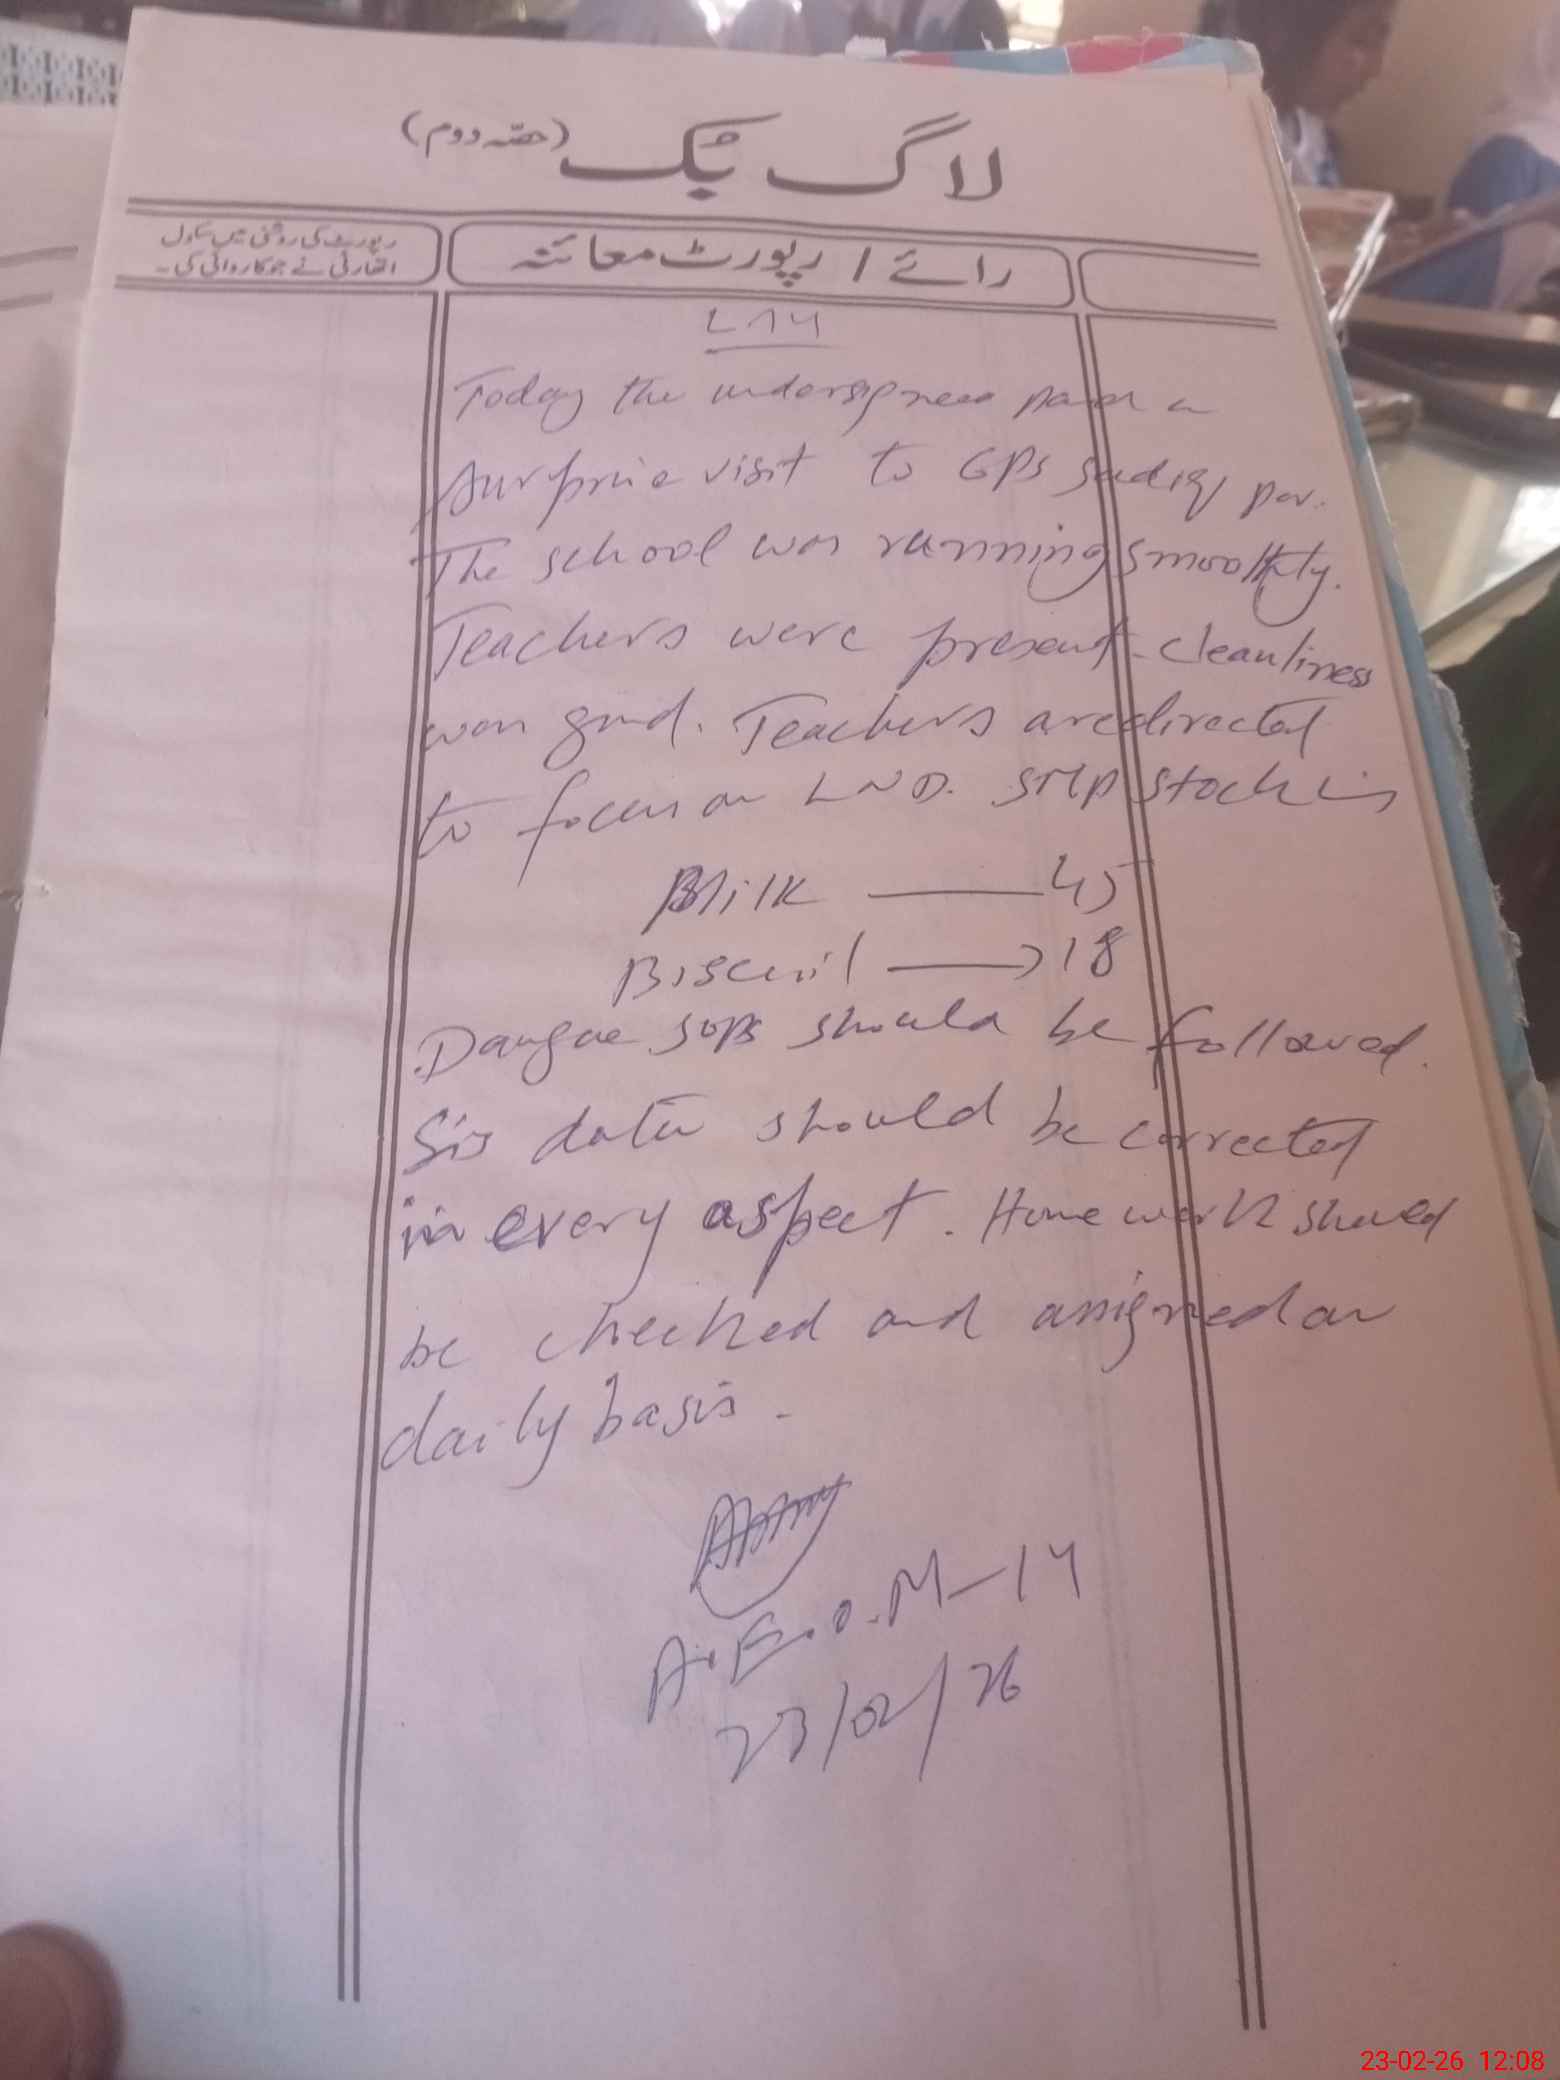 لاگ بُک (حصّہ دوم)
رائے / رپورٹ معائنہ
رپورٹ کی روشنی میں سکول
اتھارٹی نے جو کاروائی کی۔
Today the undersigned paid a
surprise visit to GPS Sadiq pur.
The school was running smoothly.
Teachers were present. cleanliness
was good. Teachers are directed
to focus on LND. SMP stock is
Milk — 45
Biscuit — 18
Dangue SOPs should be followed.
Sis data should be corrected
in every aspect. Home work should
be checked and assigned on
daily basis.
A.E.O.M-14
23/02/26
23-02-26 12:08